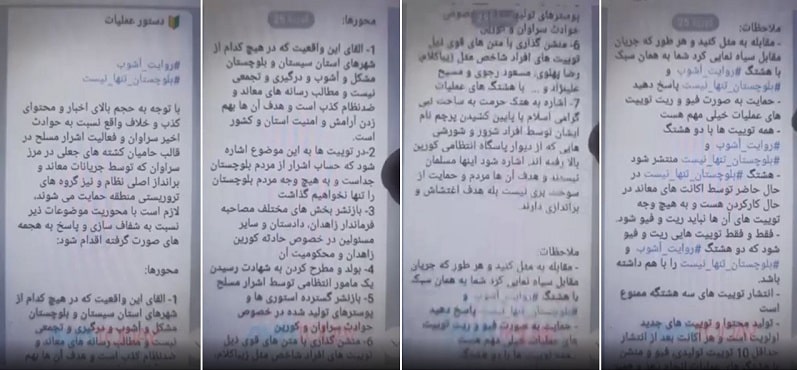 دستور عملیات
#روایت_آشوب
#بلوچستان_تنها_نیست
با توجه به حجم بالای اخبار و محتوای
کذب و خلاف واقع نسبت به حوادث
اخیر سراوان و فعالیت اشرار مسلح در
قالب حامیان کشته های جعلی در مرز
سراوان که توسط جریانات معاند و
برانداز اصلی نظام و نیز گروه های
تروریستی منطقه حمایت می شوند،
لازم است با محوریت موضوعات ذیر
نسبت به شفاف سازی و پاسخ به هجمه
های صورت گرفته اقدام شود:
محورها:
1- القای این واقعیت که در هیچ کدام از
شهرهای استان سیستان و بلوچستان
مشکل و آشوب و درگیری و تجمعی
نیست و مطالب رسانه های معاند و
ضدنظام کذب است و هدف آن ها بهم
محورها:
1- القای این واقعیت که در هیچ کدام از
شهرهای استان سیستان و بلوچستان
مشکل و آشوب و درگیری و تجمعی
نیست و مطالب رسانه های معاند و
ضدنظام کذب است و هدف آن ها بهم
زدن آرامش و امنیت استان و کشور
است.
2-در توییت ها به این موضوع اشاره
شود که حساب اشرار از مردم بلوچستان
جداست و به هیچ وجه مردم بلوچستان
را تنها نخواهیم گذاشت
3- بازنشر بخش های مختلف مصاحبه
فرماندار زاهدان، دادستان و سایر
مسئولین در خصوص حادثه کورین
زاهدان و محکومیت آن
4- بولد و مطرح کردن به شهادت رسیدن
یک مامور انتظامی توسط اشرار مسلح
5- بازنشر گسترده استوری ها و
پوسترهای تولید شده در خصوص
حوادث سراوان و کورین
6- منشن گذاری با متن های قوی ذیل
توییت های افراد شاخص مثل زیباکلام،
پوسترهای تولید
حوادث سراوان و کورین
6- منشن گذاری با متن های قوی ذیل
توییت های افراد شاخص مثل زیباکلام،
رضا پهلوی، مسعود رجوی و مسیح
علینژاد و ... با هشتگ های عملیات
7- اشاره به هتک حرمت به ساحت نبی
گرامی اسلام با پایین کشیدن پرچم نام
ایشان توسط افراد شرور و شورشی
هایی که از دیوار پاسگاه انتظامی کورین
بالا رفته اند. اشاره شود اینها مسلمان
نیستند و هدف آن ها مردم و حمایت از
سوخت بری نیست بله هدف اغتشاش و
براندازی دارند.
ملاحظات:
- مقابله به مثل کنید و هر طور که جریان
مقابل سیاه نمایی کرد شما به همان سبک
با هشتگ #روایت_آشوب و
#بلوچستان_تنها_نیست پاسخ دهید
- حمایت به صورت فیو و ریت توییت
های عملیات خیلی مهم هست
ملاحظات:
- مقابله به مثل کنید و هر طور که جریان
مقابل سیاه نمایی کرد شما به همان سبک
با هشتگ #روایت_آشوب و
#بلوچستان_تنها_نیست پاسخ دهید
- حمایت به صورت فیو و ریت توییت
های عملیات خیلی مهم هست
- همه توییت ها با دو هشتگ
#روایت_آشوب و
#بلوچستان_تنها_نیست منتشر شود
- هشتگ #بلوچستان_تنها_نیست در
حال حاضر توسط اکانت های معاند در
حال کارکردن هست و به هیچ وجه
توییت های آن ها نباید ریت و فیو شود.
- فقط و فقط توییت هایی ریت و فیو
شود که دو هشتگ #روایت_آشوب و
#بلوچستان_تنها_نیست را با هم داشته
باشد.
- انتشار توییت های سه هشتگه ممنوع
است
- تولید محتوا و توییت های جدید
اولویت است و هر اکانت بعد از انتشار
حداقل 10 توییت تولیدی، فیو و منشن